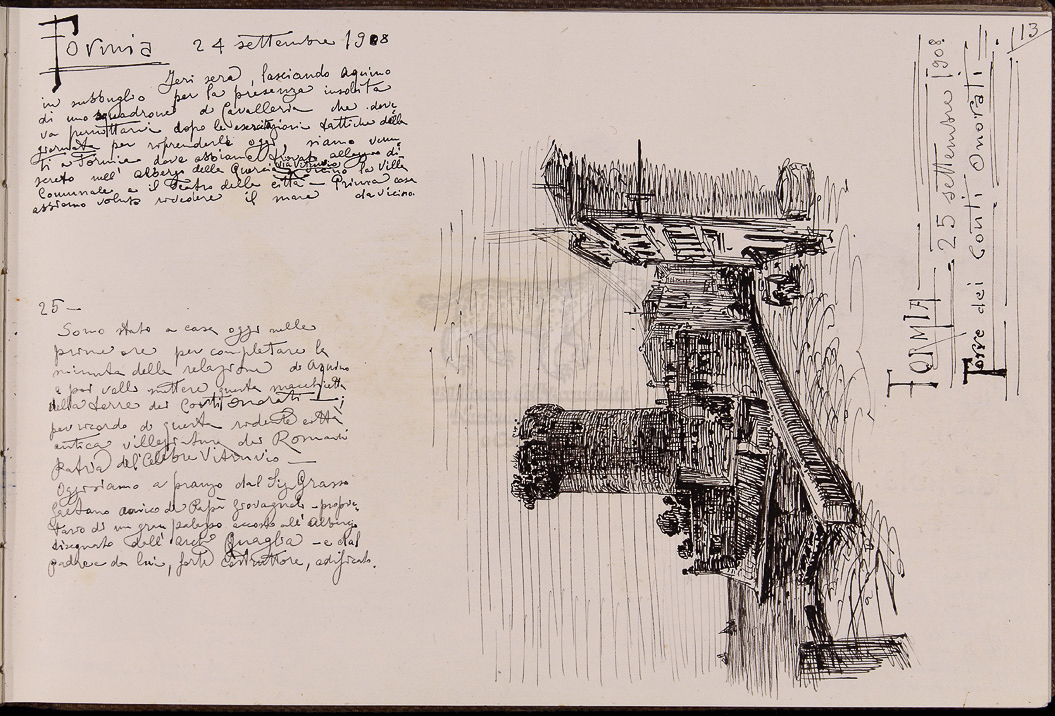 Formia 24 settembre 1908
Jeri sera, lasciando Aquino
in subbuglio per la presenza insolita
di uno squadrone di Cavalleria che dove
va pernottarvi dopo le esercitazioni tattiche della
giornata per riprenderle oggi, siamo venu
ti a Formia dove abbiamo trovato alloggio di
screto nell'albergo della Quercia via Vitruvio vicino la Villa
Comunale e il Teatro della città – Prima cosa
abbiamo voluto rivedere il mare da vicino.
25 –
Sono stato a casa oggi nelle
prime ore per completare la
minuta della relazione di Aquino
e poi volli mettere questa macchietta
della torre dei Conti Onorati – ;
per ricordo di questa ridente città
antica villeggiatura dei Romani
patria del Celebre Vitruvio –
Oggi siamo a pranzo dal Sig. Grasso
Gaetano amico de Papà – proprie
tario di un gran palazzo accosto all'albergo
disegnato dall'arch Quaglia – e dal
padre e da lui, forte costruttore, edificato.
113
FORMIA – 25 settembre 1908
Torre dei Conti Onorati –